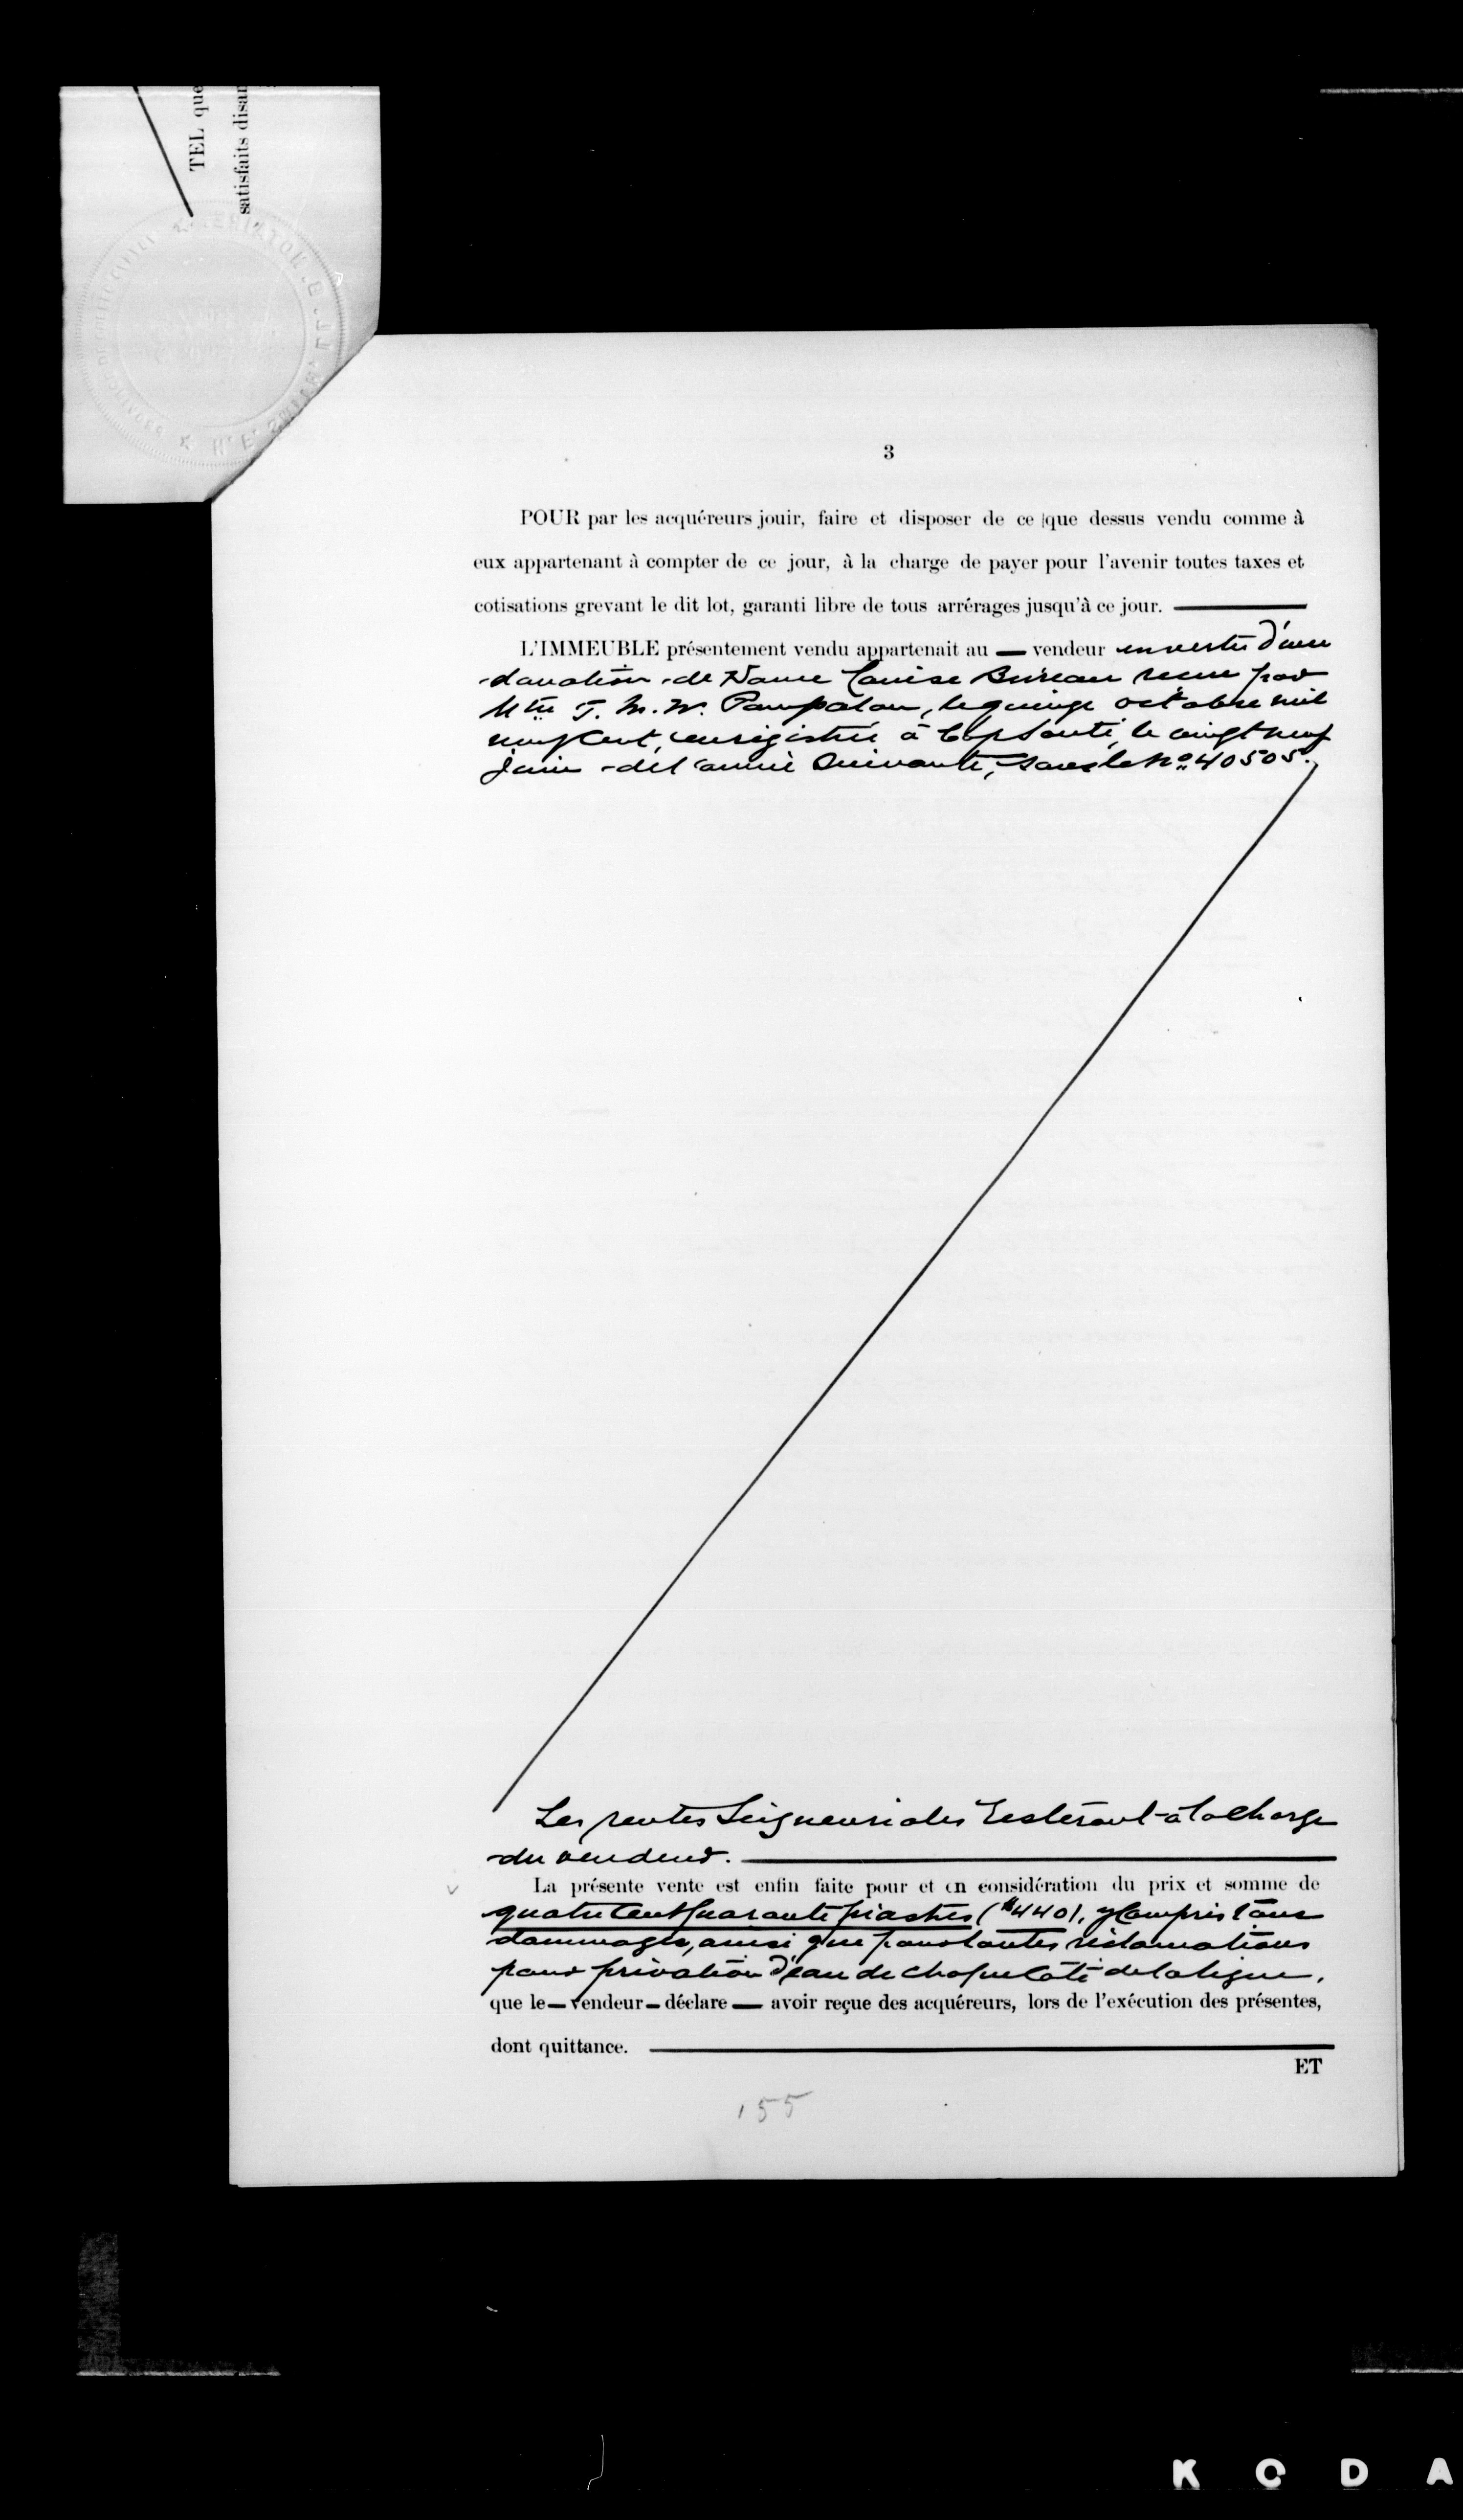 TEL que
satisfaits disan
3
POUR par les acquéreurs jouir, faire et disposer de ce que dessus vendu comme à
eux appartenant à compter de ce jour, à la charge de payer pour l'avenir toutes taxes et
cotisations grevant le dit lot, garanti libre de tous arrérages jusqu'à ce jour.
L'IMMEUBLE présentement vendu appartenait au — vendeur en vertu d'une
donation de Dame Louise Bureau reçue par
Mtre J. N. Pampalon, le quinze octobre mil
neuf cent, enregistrée à Cap Santé, le vingt neuf
Juin de l'année suivante, sous le No 40505.
Les rentes Seigneuriales resteront à la charge
du vendeur.
La présente vente est enfin faite pour et en considération du prix et somme de
quatre cent quarante piastres ($440), y compris tous
dommages, ainsi que pour toutes réclamations
pour privation d'eau de chaque côté de la ligne,
que le — vendeur — déclare — avoir reçue des acquéreurs, lors de l'exécution des présentes,
dont quittance.
ET
155
K O D A